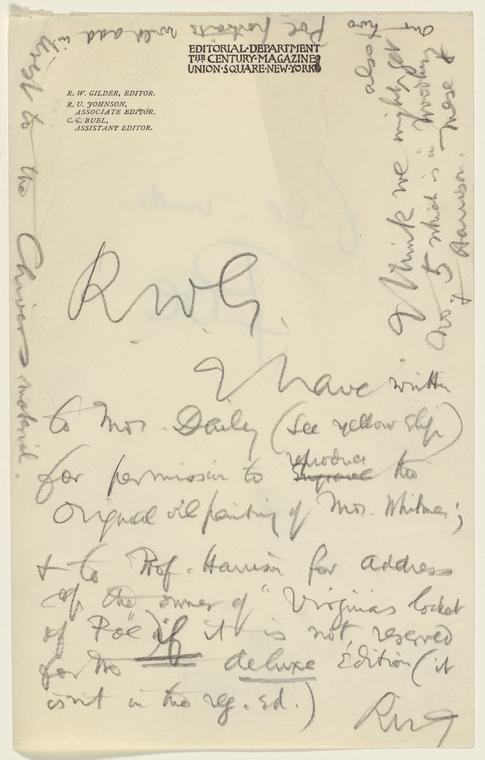 EDITORIAL DEPARTMENT
THE CENTURY MAGAZINE
UNION SQUARE NEW YORK
R. W. GILDER, EDITOR.
R. U. JOHNSON,
ASSOCIATE EDITOR.
C. C. BUEL,
ASSISTANT EDITOR.
R. W. G.
I have written
to Mrs. Dailey (see yellow slip)
for permission to engrave reproduce the
Original oil painting of Mrs. Whitman;
+ to Prof. Harrison for address
of the owner of "Virginia's locket
of Poe" if it is not reserved
for the deluxe Edition (it
isn't in the reg. ed.)
I think we might get
also
No 5 which is in Woodberry
these of
Harrison.
our two
Poe portraits would add interest
to the Chivers material.